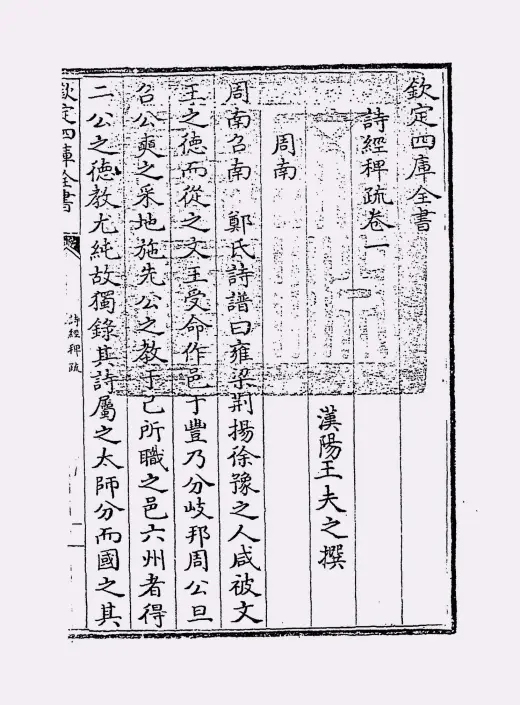 欽定四庫全書
詩經稗疏卷一
漢陽王夫之撰
周南
周南召南 鄭氏詩譜曰雍梁荆揚徐豫之人咸被文
王之徳而從之文王受命作邑于豐乃分岐邦周公旦
召公奭之采地施先公之教于己所職之邑六州者得
二公之徳教尤純故獨錄其詩屬之太師分而國之其
欽定四庫全書
詩經稗疏